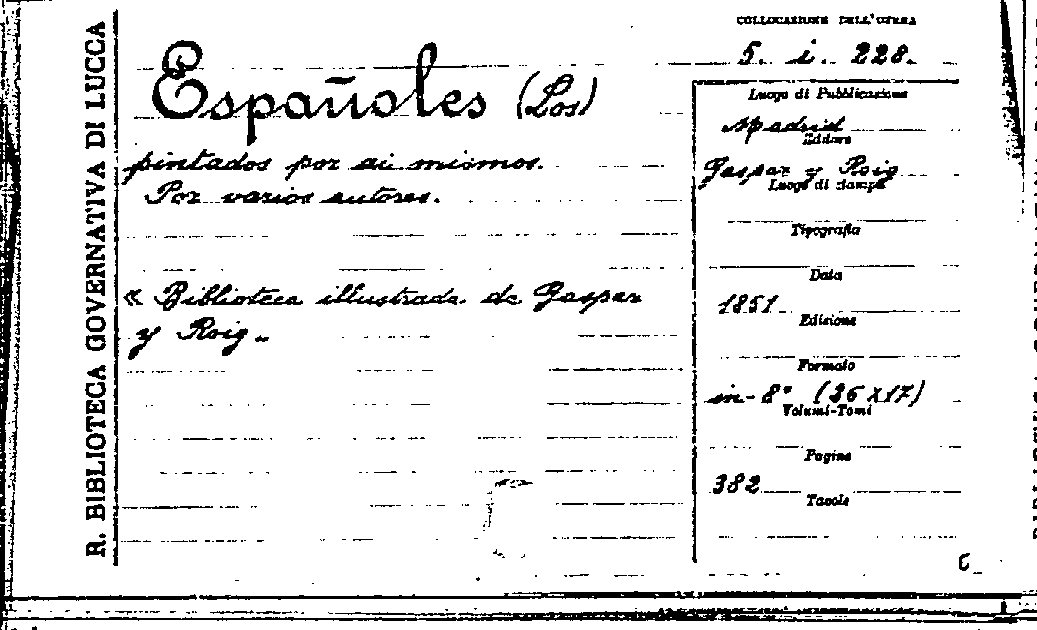 R. BIBLIOTECA GOVERNATIVA DI LUCCA
COLLOCAZIONE DELL'OPERA
5. i. 228.
Españoles (Los)
pintados por si mismos.
Por varios autores.
« Biblioteca illustrada de Gaspar
y Roig „
Luogo di Pubblicazione
Madrid
Editore
Gaspar y Roig
Luogo di stampa
Tipografia
Data
1851
Edizione
Formato
in-8° (26x17)
Volumi-Tomi
Pagine
382
Tavole